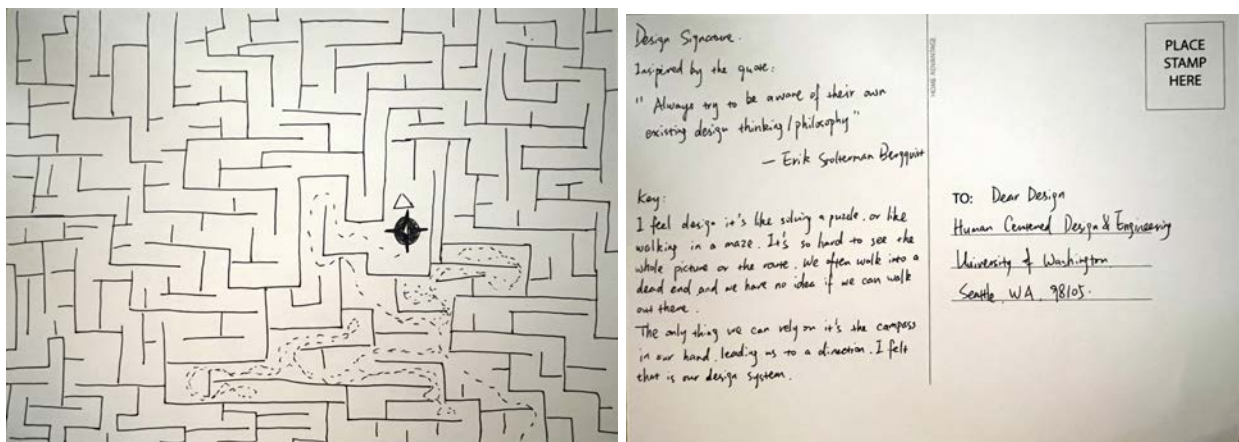 Design Signature.
Inspired by the quote:
" Always try to be aware of their own
existing design thinking/philosophy"
— Erik Stolterman Bergqvist
Key:
I feel design it's like solving a puzzle, or like
walking in a maze. It's so hard to see the
whole picture or the route. We often walk into a
dead end and we have no idea if we can walk
out there.
The only thing we can rely on it's the compass
in our hand, leading us to a direction. I felt
that is our design system.
HOME ADVANTAGE
PLACE
STAMP
HERE
TO: Dear Design
Human Centered Design & Engineering
University of Washington
Seattle, WA, 98105.